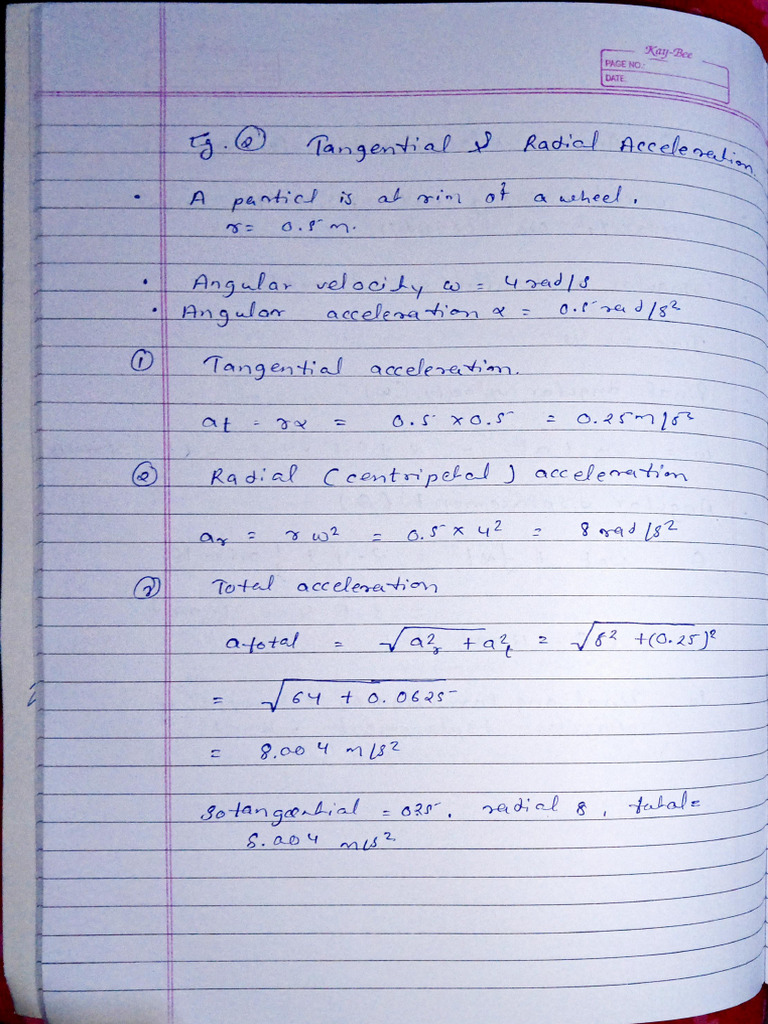 Kay-Bee
PAGE NO.:
DATE:
Eg. ② Tangential & Radial Acceleration.
• A particl is at rim of a wheel.
r = 0.5 m.
• Angular velocity ω = 4 rad/s
• Angular acceleration α = 0.5 rad/s²
① Tangential acceleration.
at = rα = 0.5 × 0.5 = 0.25 m/s²
② Radial (centripetal) acceleration
ar = r ω² = 0.5 × 4² = 8 rad/s²
③ Total acceleration
atotal = √a²r + a²t = √8² + (0.25)²
= √64 + 0.0625
= 8.004 m/s²
so tangential = 0.25, radial 8, total =
8.004 m/s²